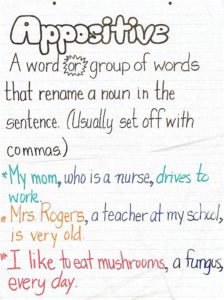 Appositive
A word or group of words
that rename a noun in the
sentence. (Usually set off with
commas)
*My mom, who is a nurse, drives to
work.
*Mrs. Rogers, a teacher at my school,
is very old.
*I like to eat mushrooms, a fungus,
every day.